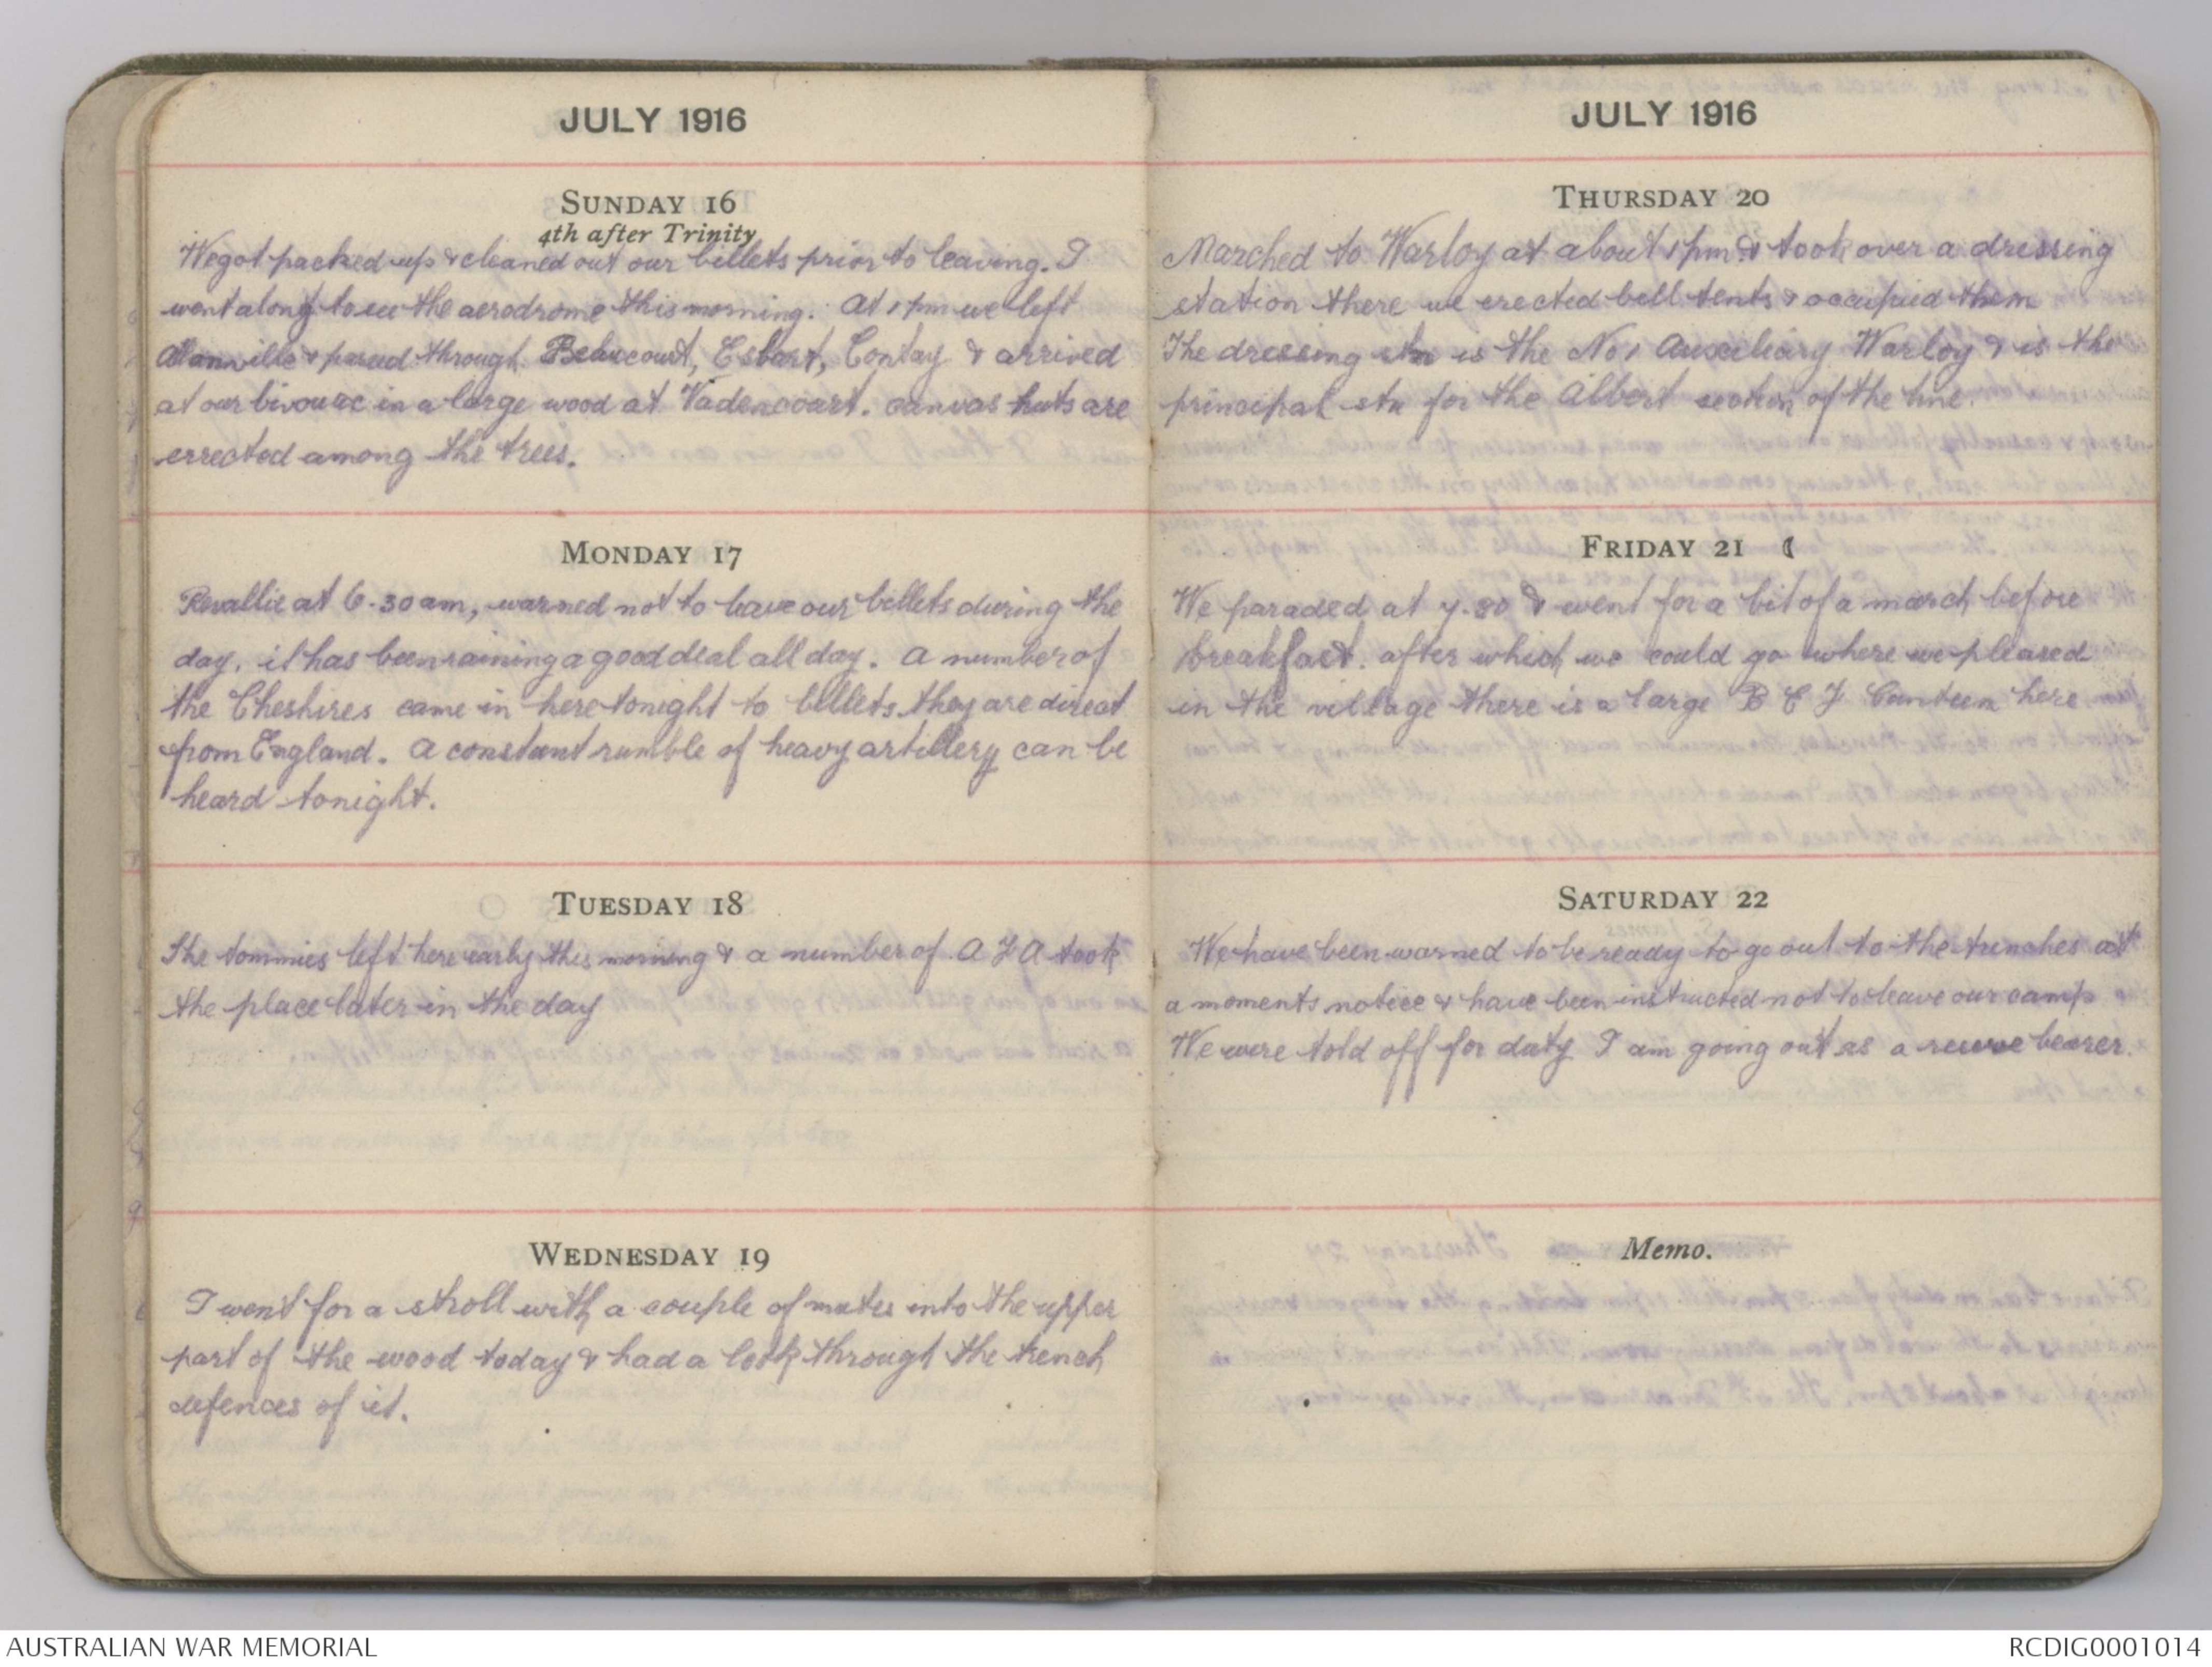 JULY 1916
SUNDAY 16
4th after Trinity
We got packed up & cleaned out our billets prior to leaving. I
went along to see the aerodrome this morning. At 1 pm we left
Allanville & passed through Behucourt, Esbart, Contay & arrived
at our bivouac in a large wood at Vadencourt. canvas huts are
errected among the trees.
MONDAY 17
Revallie at 6.30 am, warned not to leave our billets during the
day, it has been raining a good deal all day. A number of
the Cheshires came in here tonight to billets, they are direct
from England. A constant rumble of heavy artillery can be
heard tonight.
TUESDAY 18
The tommies left here early this morning & a number of A F A took
the place later in the day
WEDNESDAY 19
I went for a stroll with a couple of mates into the upper
part of the wood today & had a look through the trench
defences of it.
JULY 1916
THURSDAY 20
Marched to Warloy at about 1 pm & took over a dressing
station there we erected bell tents & occupied them
The dressing stn is the No 1 Auxiliary Warloy & is the
principal stn for the Albert section of the line.
FRIDAY 21
We paraded at 7.30 & went for a bit of a march before
breakfast. after which we could go where we pleased
in the village there is a large B E F Canteen here
SATURDAY 22
We have been warned to be ready to go out to the trenches at
a moments notice & have been instructed not to leave our camp
We were told off for duty I am going out as a reserve bearer.
Memo.
AUSTRALIAN WAR MEMORIAL
RCDIG0001014